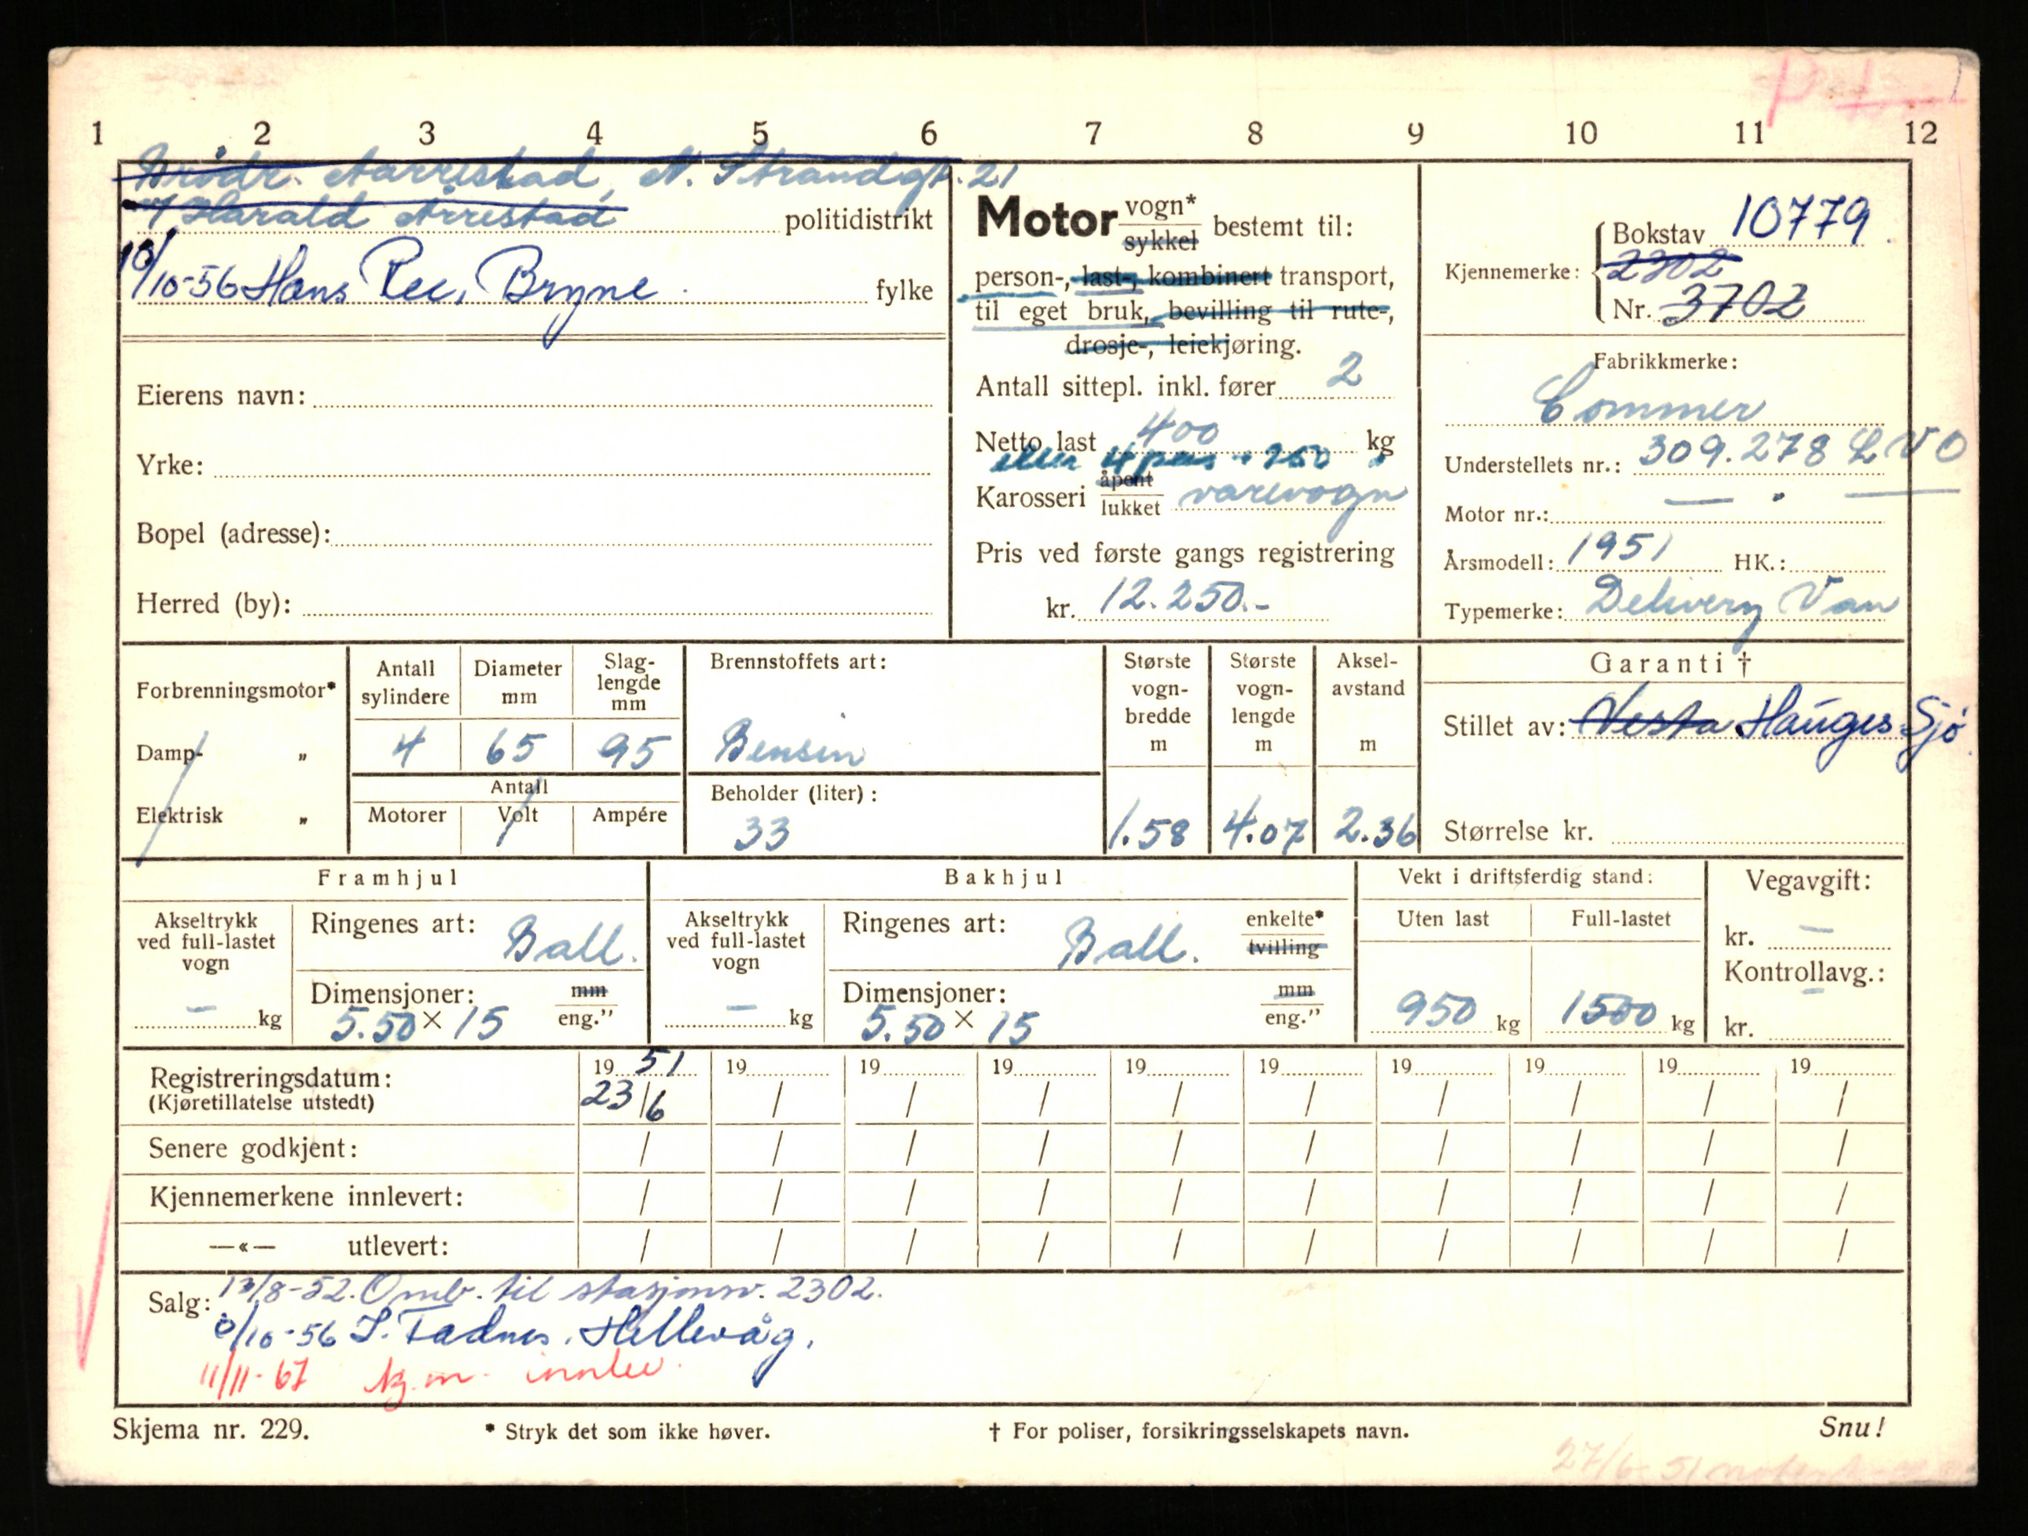 1 2 3 4 5 6 7 8 9 10 11 12
Brødr. Aarrestad, N. Strandgt. 21
v/ Harald Årrestad politidistrikt
10/10-56 Hans Ree, Bryne. fylke
Eierens navn:
Yrke:
Bopel (adresse):
Herred (by):
Motor vogn* sykkel bestemt til:
person-, last-, kombinert transport,
til eget bruk, bevilling til rute-,
drosje-, leiekjøring.
Antall sittepl. inkl. fører 2
Netto last 400 kg
eller 4 pers + 250 "
Karosseri åpent lukket varevogn
Pris ved første gangs registrering
kr. 12.250.-
Kjennemerke: Bokstav 10779
2302
Nr. 3702
Fabrikkmerke:
Commer
Understellets nr.: 309.278 LVO
Motor nr.: — " —
Årsmodell: 1951 HK.:
Typemerke: Delivery Van
Forbrenningsmotor*
Damp- „
Elektrisk „
Antall sylindere Diameter mm Slag-lengde mm
4 65 95
Antall
Motorer Volt Ampére
Brennstoffets art:
Bensin
Beholder (liter):
33
Største vogn-bredde m Største vogn-lengde m Aksel-avstand m
1.58 4.07 2.36
Garanti †
Stillet av: Vesta Hauges. Sjø
Størrelse kr.
Framhjul
Akseltrykk ved full-lastet vogn
– kg
Ringenes art: Ball.
Dimensjoner: mm eng."
5.50 × 15
Bakhjul
Akseltrykk ved full-lastet vogn
– kg
Ringenes art: Ball. enkelte* tvilling
Dimensjoner: mm eng."
5.50 × 15
Vekt i driftsferdig stand:
Uten last Full-lastet
950 kg 1500 kg
Vegavgift:
kr. –
Kontrollavg.:
kr. –
Registreringsdatum: 1951 19 19 19 19 19 19 19 19 19
(Kjøretillatelse utstedt) 23/6 / / / / / / / / /
Senere godkjent: / / / / / / / / / /
Kjennemerkene innlevert: / / / / / / / / / /
—«— utlevert: / / / / / / / / / /
Salg: 13/8-52. Omb. til stasjonsv. 2302.
/10-56 S. Tadnes, Hellevåg.
11/11-67 kj.m. innlev.
Skjema nr. 229. * Stryk det som ikke høver. † For poliser, forsikringsselskapets navn. Snu!
27/6-51